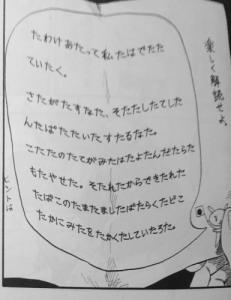 楽しく解読せよ。
たわけあたって私たはでたた
ていたく。
さたがたすなた、そたたしたてした
んたぱたたいたすたるなた。
こたたのたてがみたはたよたんだたらた
もたやせた。そたれたからできたれた
たばこのたまたましたばたらくたどこ
たかにみたをたかくたしていたろた。
ヒントは